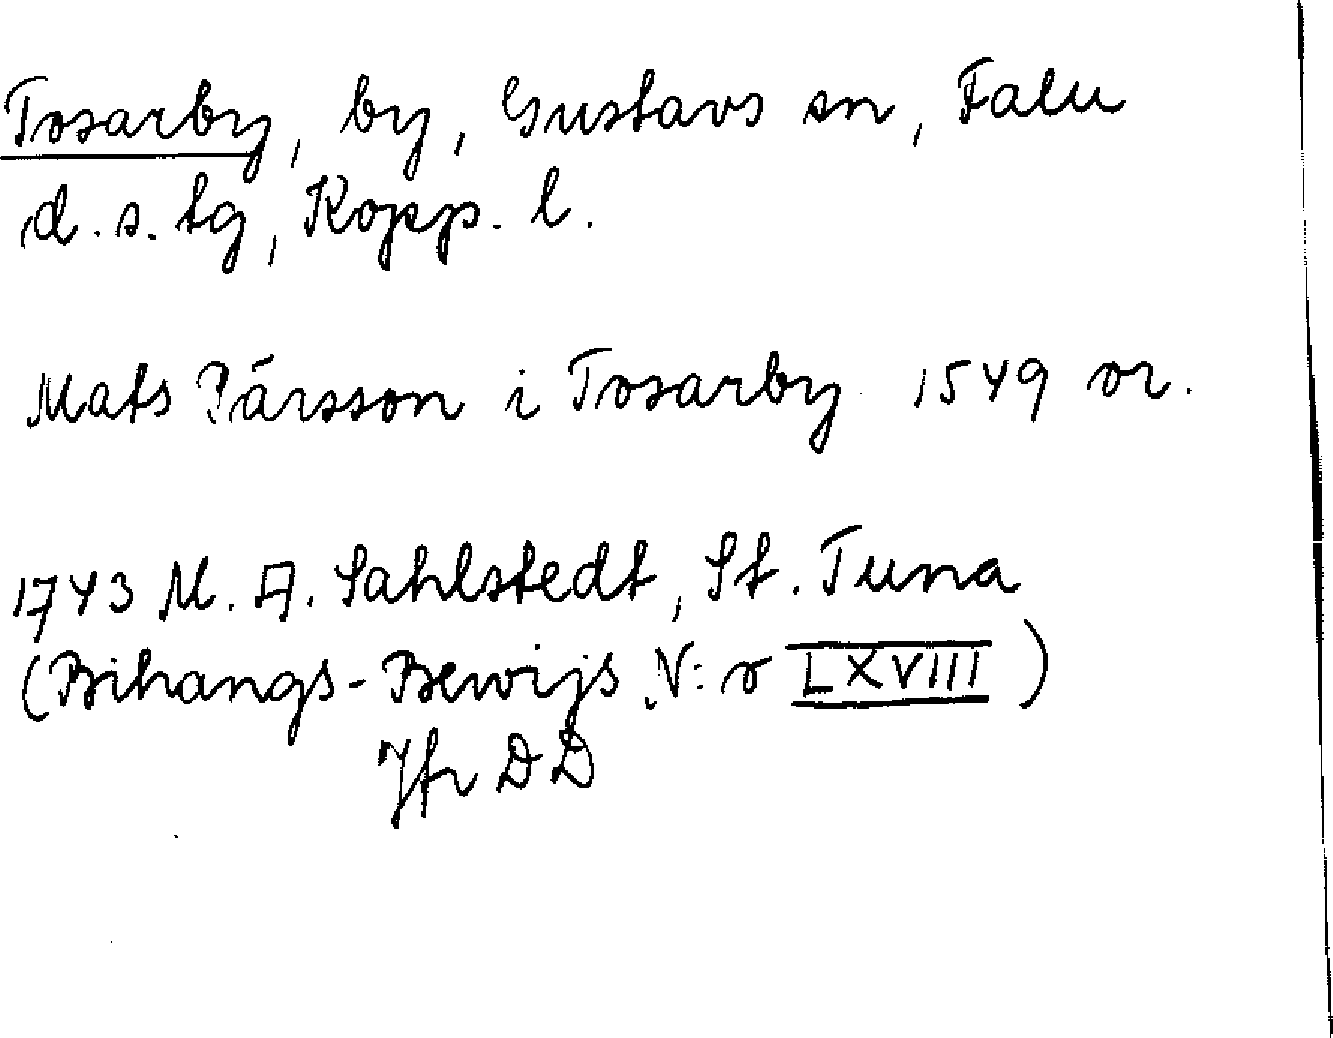 Tosarby, by, Gustavs sn, Falu
d.s. tg, Kopp. l.
Mats Pärsson i Tosarby 1549 or.
1743 M. A. Sahlstedt, St. Tuna
(Bihangs-Bewijs N:o LXVIII)
Jfr DD